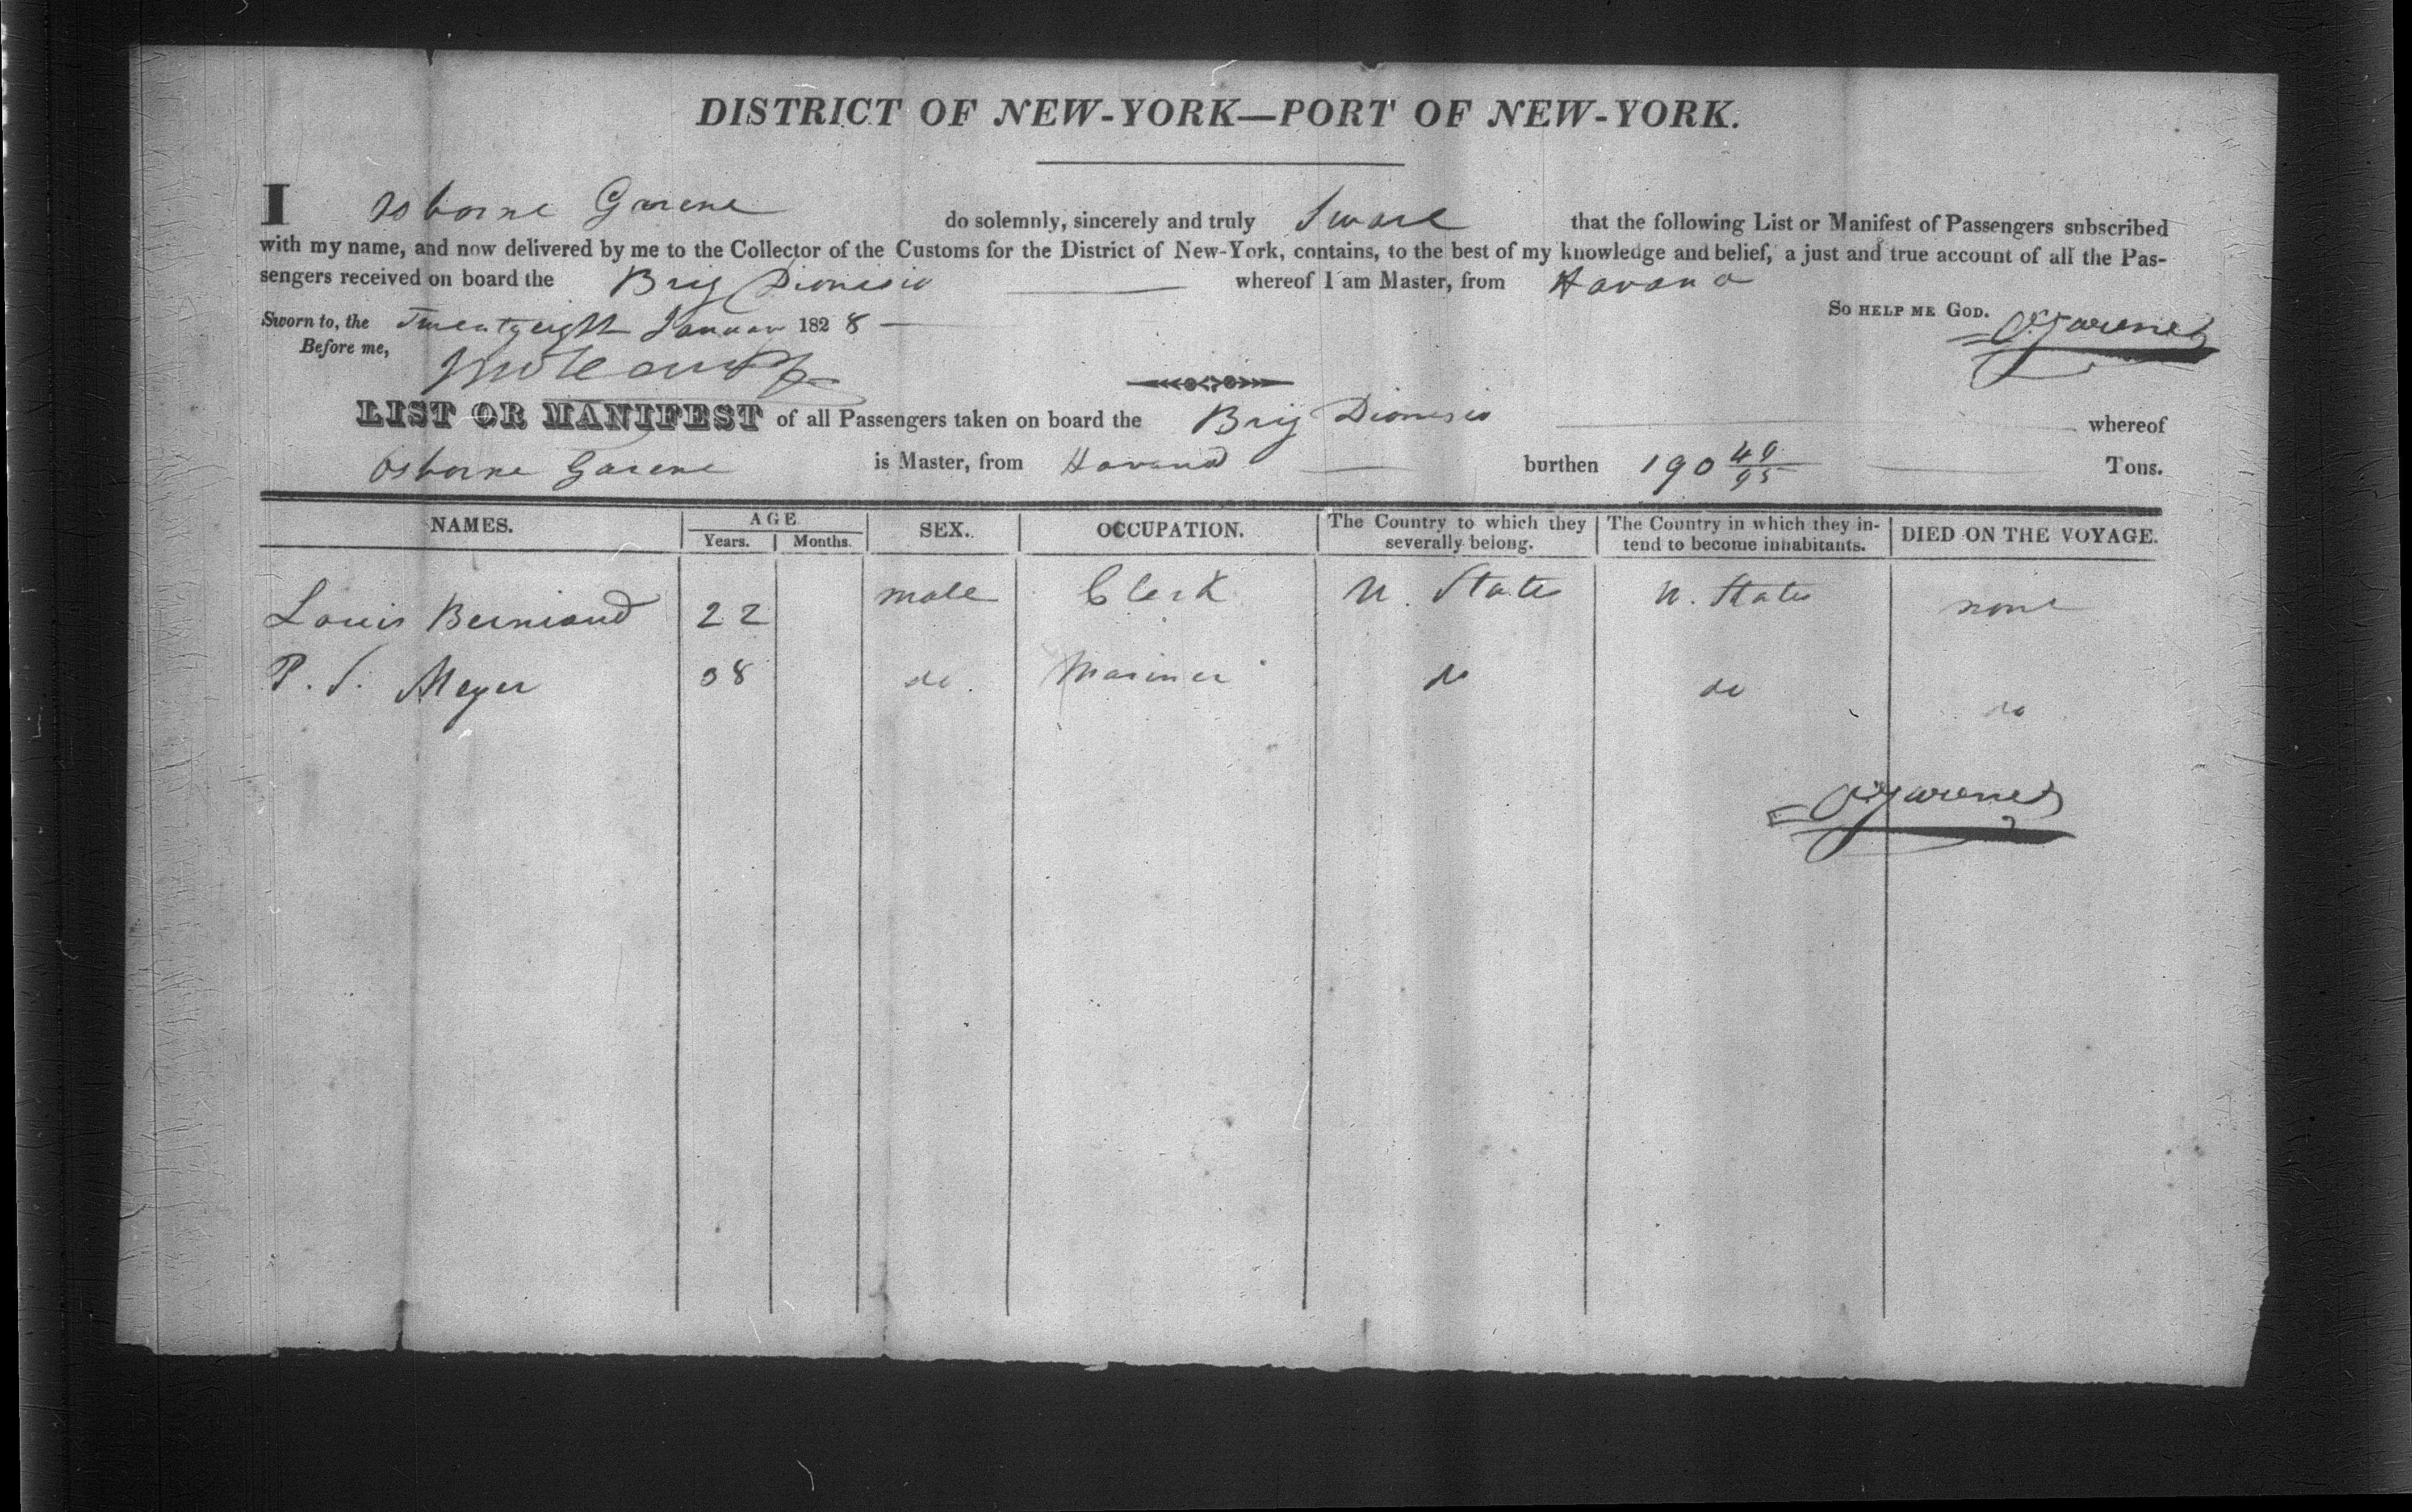 DISTRICT OF NEW-YORK—PORT OF NEW-YORK.
I Osborne Garene do solemnly, sincerely and truly Swear that the following List or Manifest of Passengers subscribed
with my name, and now delivered by me to the Collector of the Customs for the District of New-York, contains, to the best of my knowledge and belief, a just and true account of all the Pas-
sengers received on board the Brig Dionisio whereof I am Master, from Havana
So help me God.
Sworn to, the Twentyeight January 1828
Before me,
LIST OR MANIFEST of all Passengers taken on board the Brig Dionisio whereof
Osborne Garene is Master, from Havana burthen 190 49/95 Tons.
NAMES. AGE Years. Months. SEX. OCCUPATION. The Country to which they severally belong. The Country in which they in-tend to become inhabitants. DIED ON THE VOYAGE.
Louis Berniaud 22 male Clerk U. States U. States none
P. S. Meyer 38 do Mariner do do do